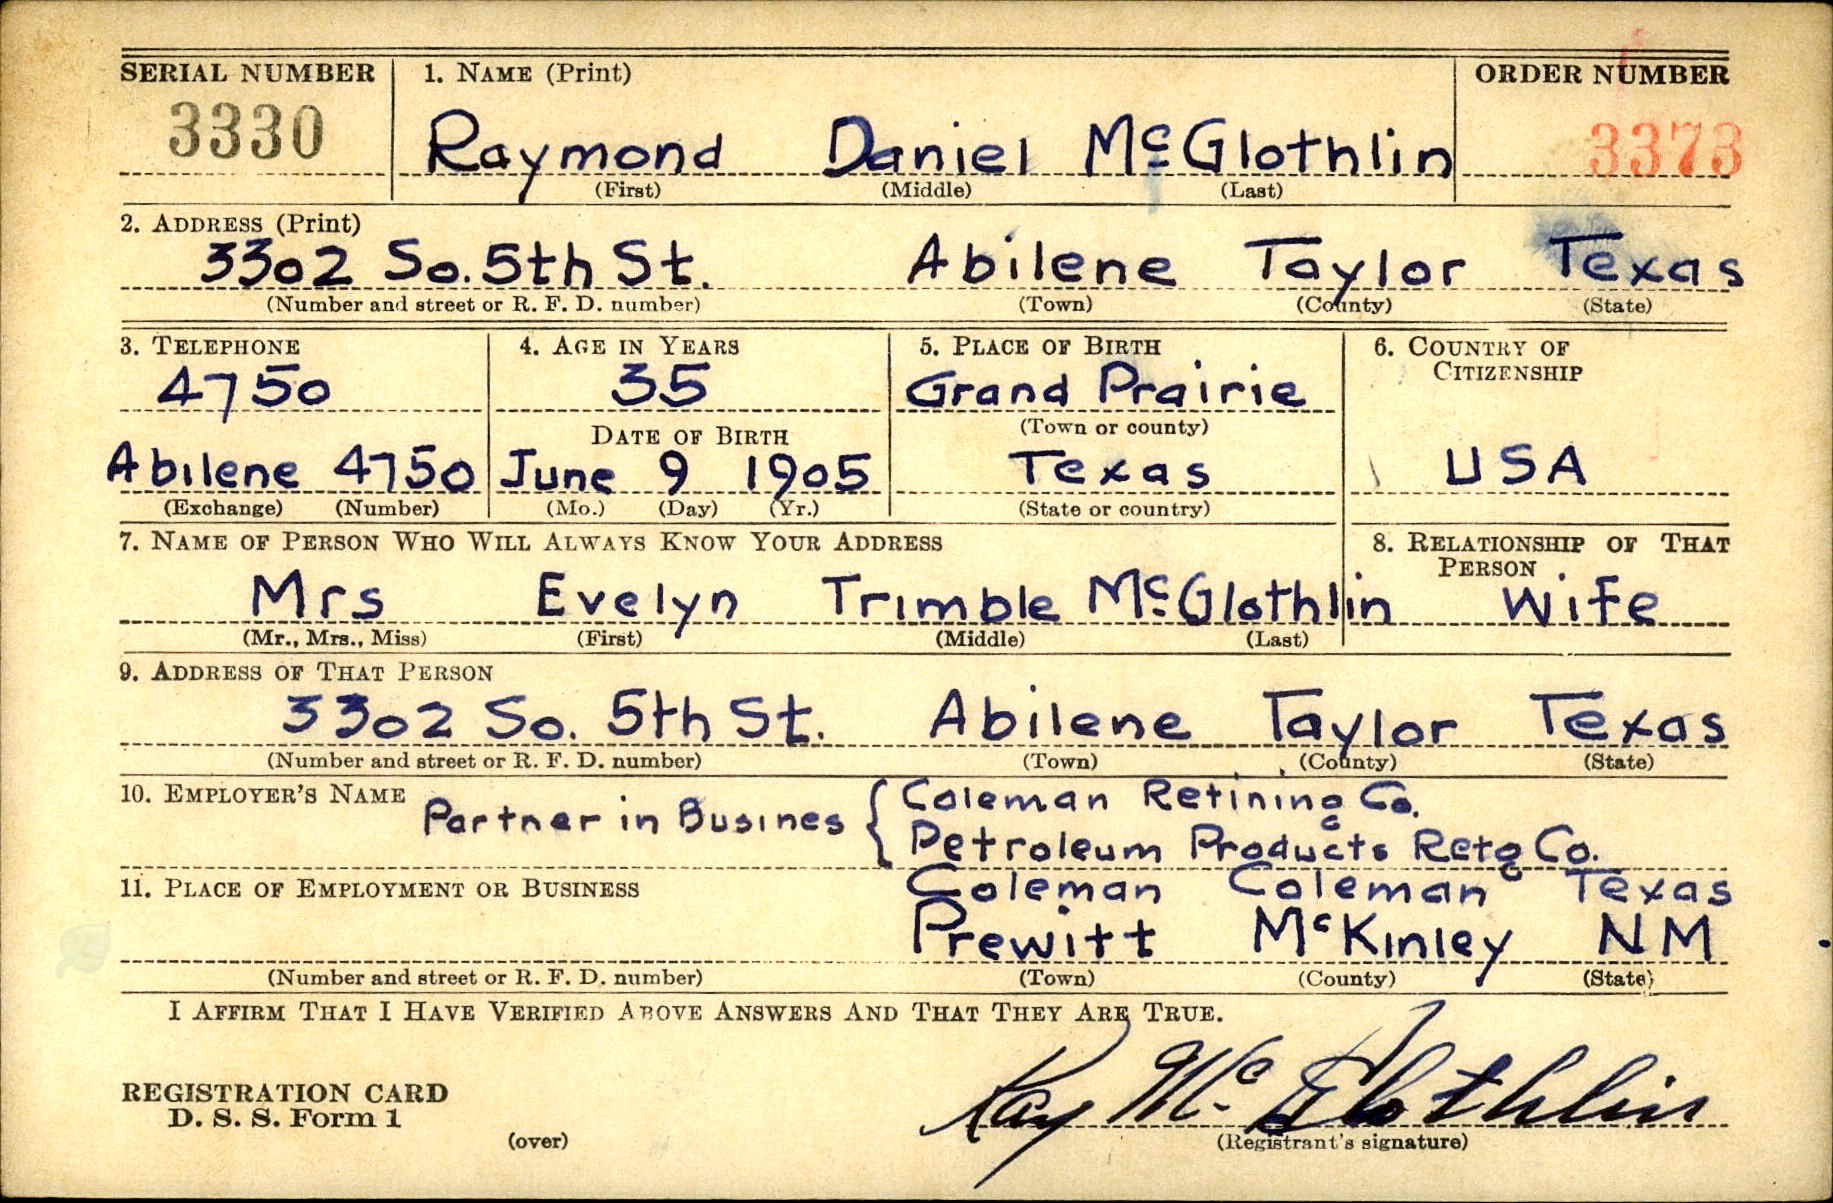 SERIAL NUMBER 1. NAME (Print) ORDER NUMBER
3330 Raymond Daniel McGlothlin 3373
(First) (Middle) (Last)
2. ADDRESS (Print)
3302 So. 5th St. Abilene Taylor Texas
(Number and street or R. F. D. number) (Town) (County) (State)
3. TELEPHONE 4. AGE IN YEARS 5. PLACE OF BIRTH 6. COUNTRY OF
CITIZENSHIP
4750 35 Grand Prairie
DATE OF BIRTH (Town or county)
Abilene 4750 June 9 1905 Texas USA
(Exchange) (Number) (Mo.) (Day) (Yr.) (State or country)
7. NAME OF PERSON WHO WILL ALWAYS KNOW YOUR ADDRESS 8. RELATIONSHIP OF THAT
PERSON
Mrs Evelyn Trimble McGlothlin Wife
(Mr., Mrs., Miss) (First) (Middle) (Last)
9. ADDRESS OF THAT PERSON
3302 So. 5th St. Abilene Taylor Texas
(Number and street or R. F. D. number) (Town) (County) (State)
10. EMPLOYER'S NAME Partner in Busines { Coleman Refining Co.
Petroleum Products Refg Co.
11. PLACE OF EMPLOYMENT OR BUSINESS Coleman Coleman Texas
Prewitt McKinley NM
(Number and street or R. F. D. number) (Town) (County) (State)
I AFFIRM THAT I HAVE VERIFIED ABOVE ANSWERS AND THAT THEY ARE TRUE.
REGISTRATION CARD
D. S. S. Form 1
Ray McGlothlin
(over) (Registrant's signature)